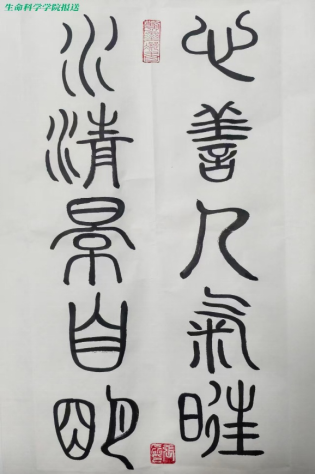 生命科学学院报送
心善人氣旺
水清景自明